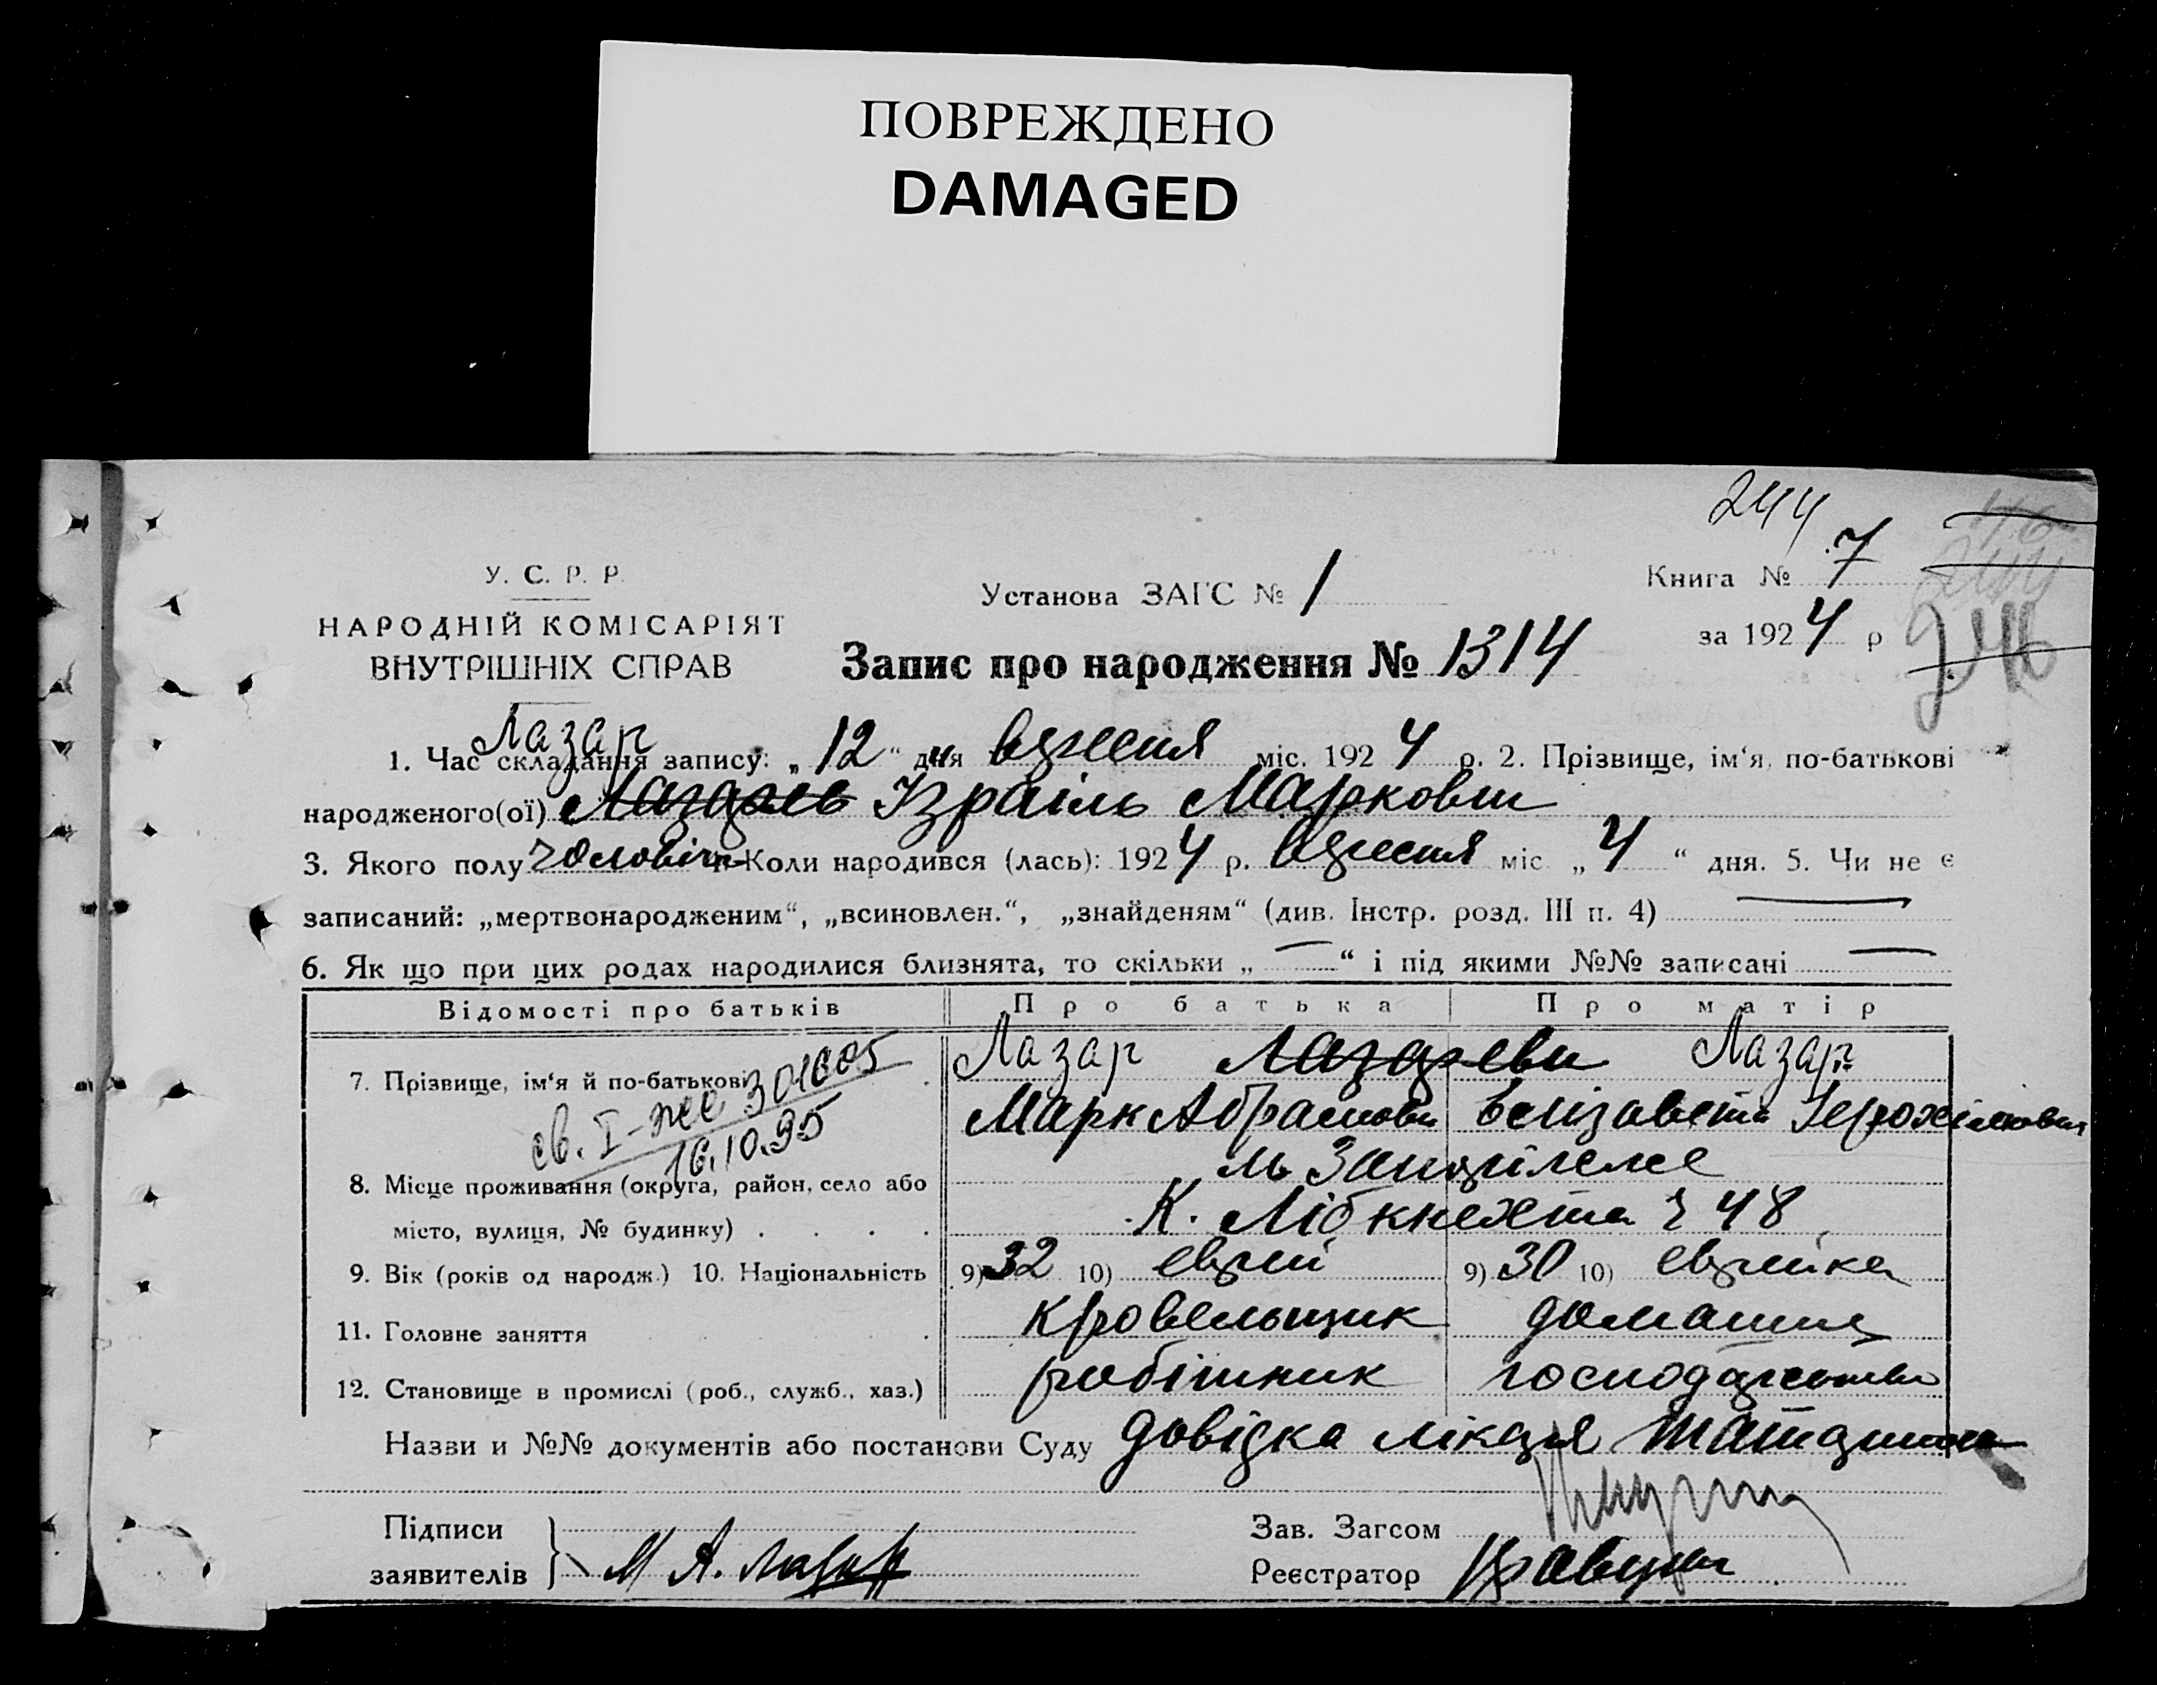 ПОВРЕЖДЕНО
DAMAGED
244
У. С. Р. Р.
НАРОДНІЙ КОМІСАРІЯТ
ВНУТРІШНІХ СПРАВ
Установа ЗАГС № 1
Книга № 7
за 1924 р
246
Запис про народження № 1314
Лазар
1. Час складання запису: „12“ дня вересня міс. 1924 р. 2. Прізвище, ім‘я, по-батькові
народженого(ої) Ізраіль Маркович
3. Якого полу чоловіч 4. Коли народився (лась): 1924 р. вересня міс. „4“ дня. 5. Чи не є
записаний: „мертвонародженим“, „всиновлен.“, „знайденям“ (див. Інстр. розд. III п. 4) —
6. Як що при цих родах народилися близнята, то скільки „—“ і під якими №№ записані —
Відомості про батьків Про батька Про матір
7. Прізвище, ім‘я й по-батькові Лазар Лазареви Лазар
Марк Абрамови Єлізавета
св. I-ЖС 301005
16.10.95
8. Місце проживання (округа, район, село або
місто, вулиця, № будинку) К. Лібкнехта 48
9. Вік (років од народж.) 10. Національність 9) 32 10) еврей 9) 30 10) еврейка
11. Головне заняття кровельщик домашнє
12. Становище в промислі (роб., служб., хаз.) робітник господарство
Назви и №№ документів або постанови Суду довідка лікаря
Підписи
заявителів М А. Лазар
Зав. Загсом
Реєстратор